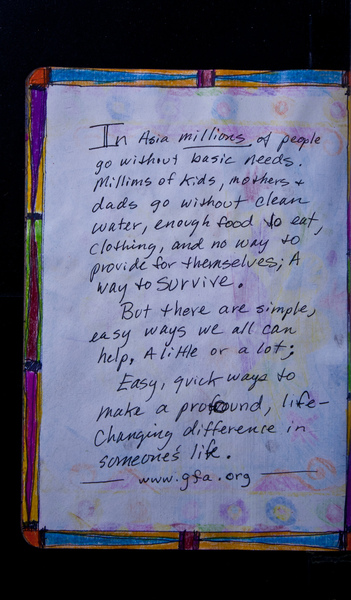 In Asia millions of people
go without basic needs.
Millims of kids, mothers +
dads go without clean
water, enough food to eat,
clothing, and no way to
provide for themselves; A
way to survive.
But there are simple,
easy ways we all can
help. A little or a lot;
Easy, quick ways to
make a profound, life-
changing difference in
someone's life.
www.gfa.org